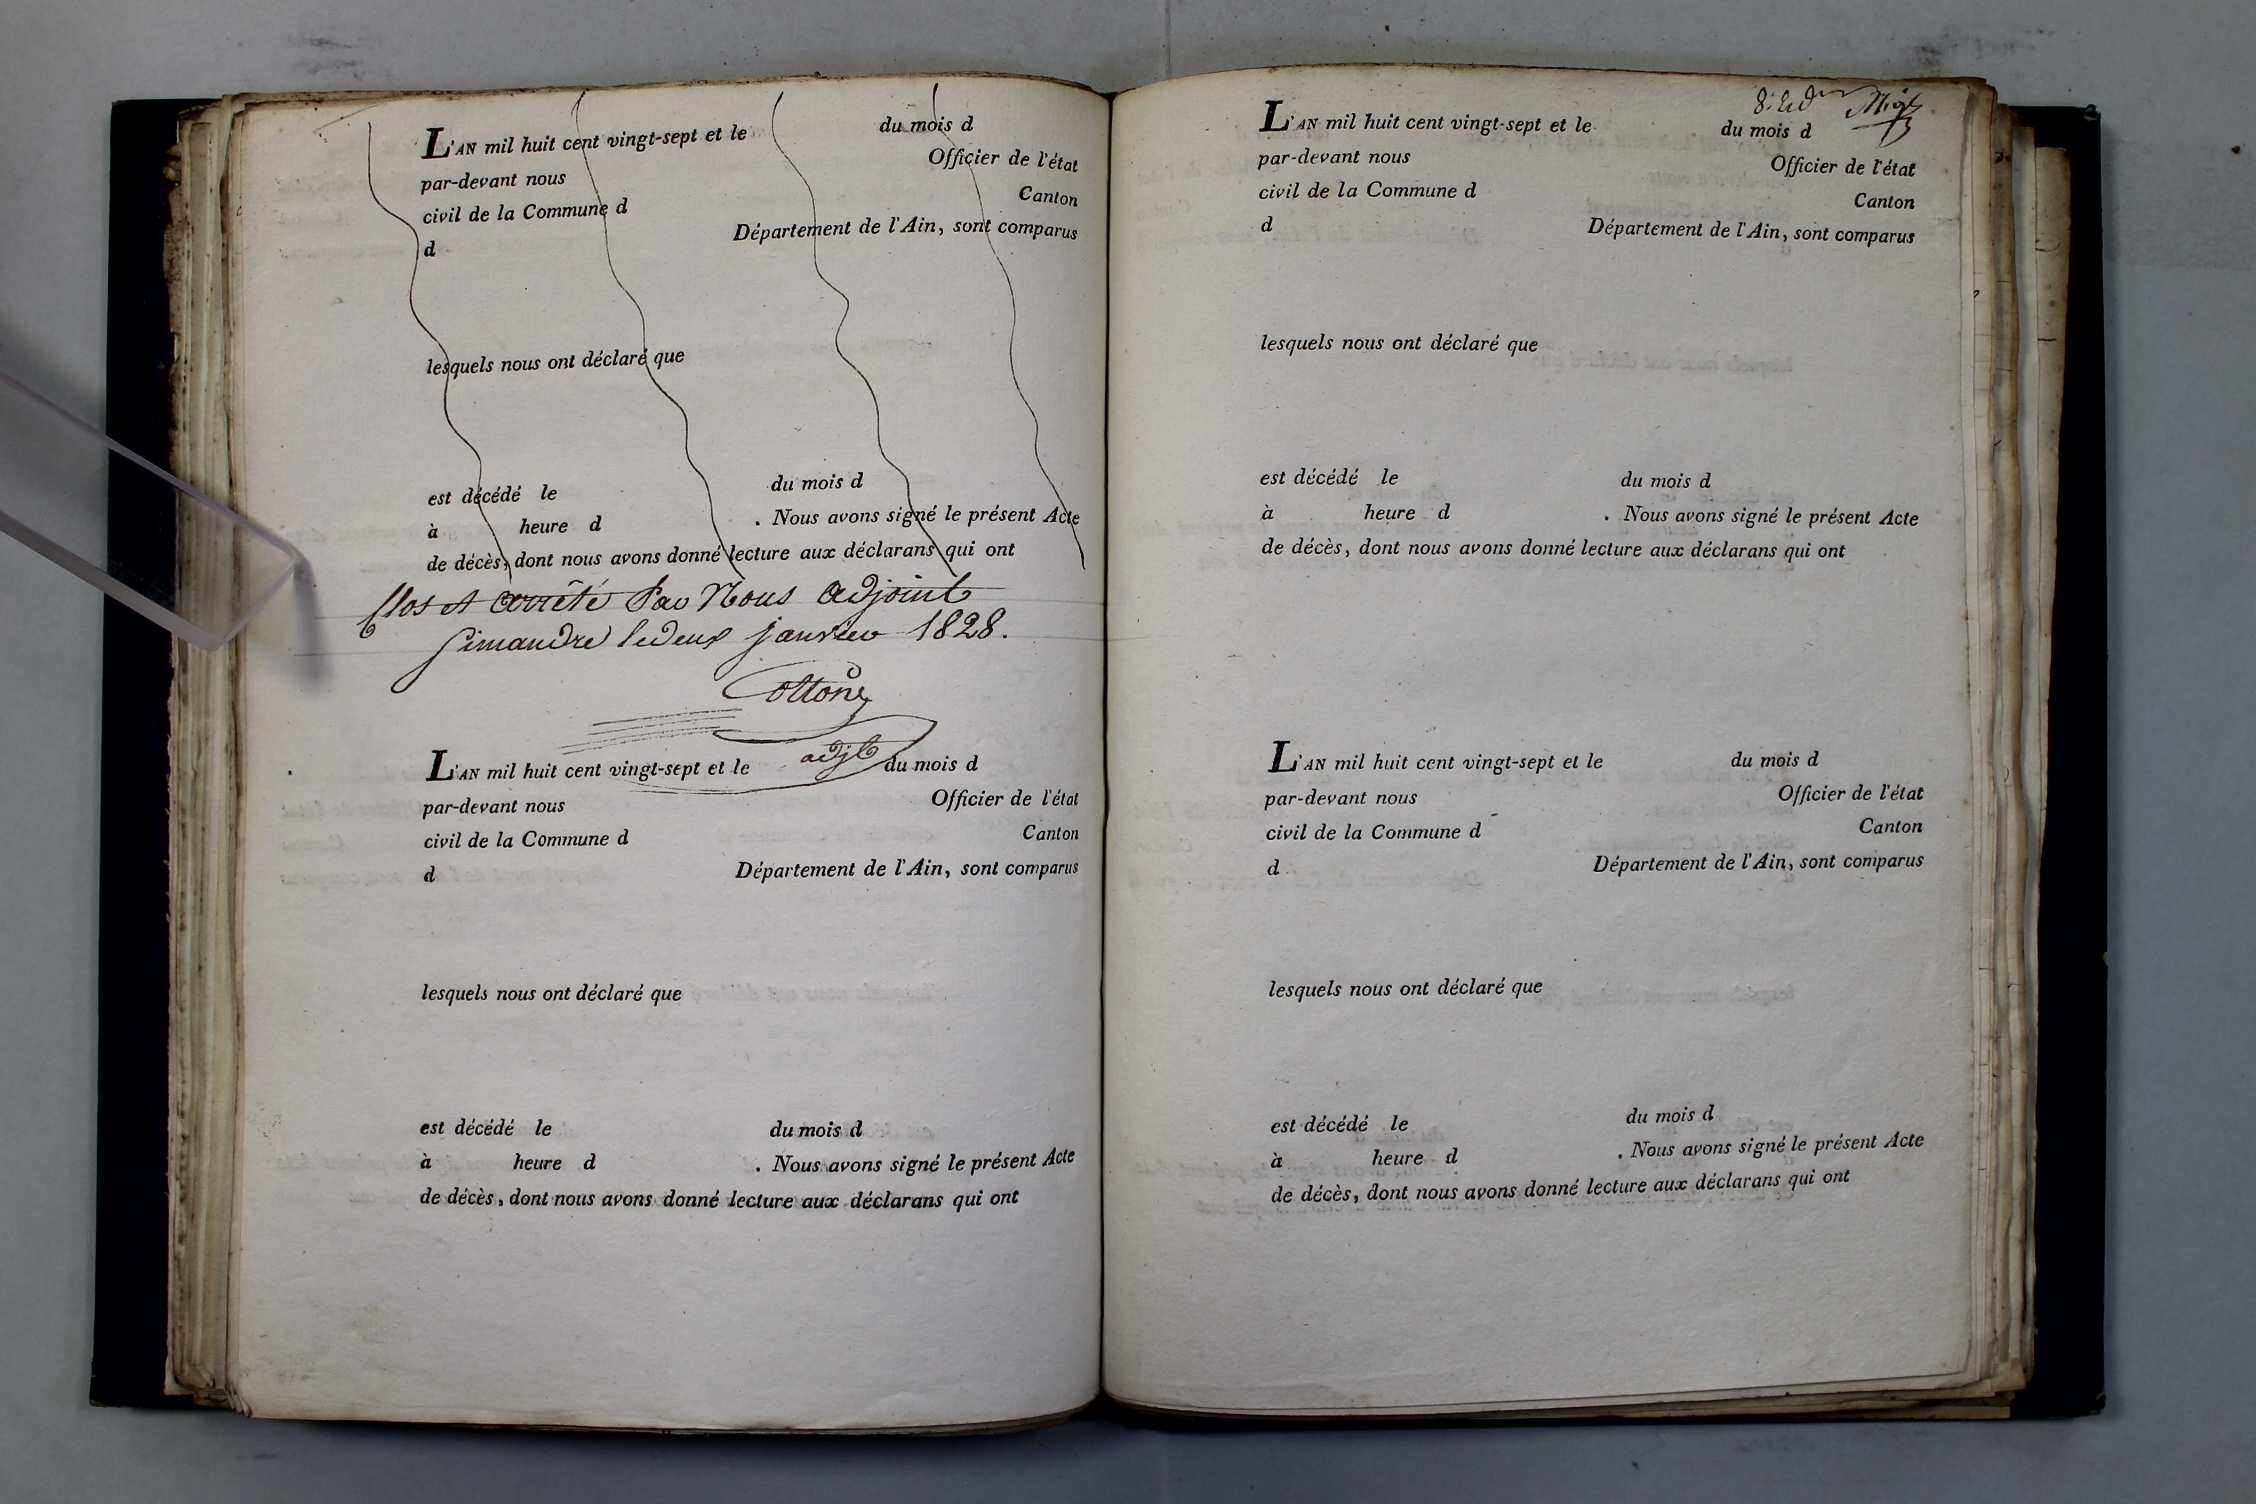 L'AN mil huit cent vingt-sept et le du mois d
par-devant nous Officier de l'état
civil de la Commune d Canton
d Département de l'Ain, sont comparus
lesquels nous ont déclaré que
est décédé le du mois d
à heure d . Nous avons signé le présent Acte
de décès, dont nous avons donné lecture aux déclarans qui ont
Clos et arrêté Par Nous adjoint
Simandre le deux janvier 1828.
Cotton
adjt
L'AN mil huit cent vingt-sept et le du mois d
par-devant nous Officier de l'état
civil de la Commune d Canton
d Département de l'Ain, sont comparus
lesquels nous ont déclaré que
est décédé le du mois d
à heure d . Nous avons signé le présent Acte
de décès, dont nous avons donné lecture aux déclarans qui ont
L'AN mil huit cent vingt-sept et le du mois d
par-devant nous Officier de l'état
civil de la Commune d Canton
d Département de l'Ain, sont comparus
lesquels nous ont déclaré que
est décédé le du mois d
à heure d . Nous avons signé le présent Acte
de décès, dont nous avons donné lecture aux déclarans qui ont
L'AN mil huit cent vingt-sept et le du mois d
par-devant nous Officier de l'état
civil de la Commune d Canton
d Département de l'Ain, sont comparus
lesquels nous ont déclaré que
est décédé le du mois d
à heure d . Nous avons signé le présent Acte
de décès, dont nous avons donné lecture aux déclarans qui ont